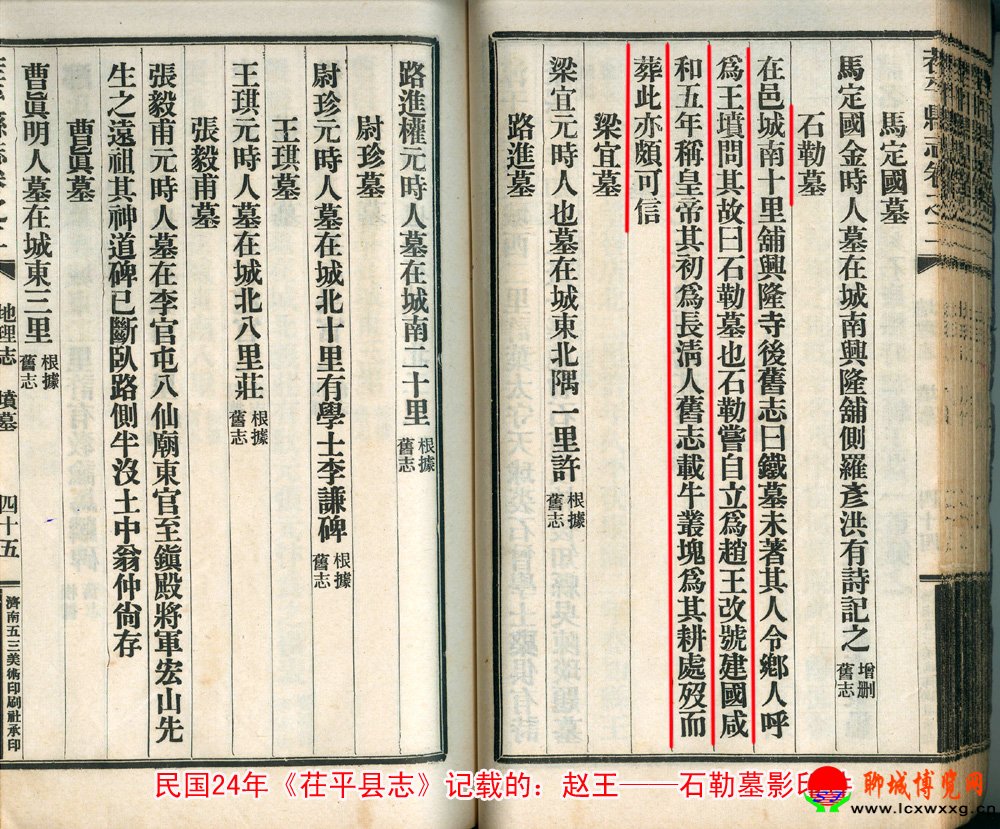 馬定國墓
馬定國金時人墓在城南興隆舖側羅彥洪有詩記之 增刪舊志
石勒墓
在邑城南十里舖興隆寺後舊志曰鐵墓未著其人今鄉人呼
為王墳問其故曰石勒墓也石勒嘗自立為趙王改號建國咸
和五年稱皇帝其初為長清人舊志載牛叢塊為其耕處歿而
葬此亦頗可信
梁宜墓
梁宜元時人也墓在城東北隅一里許 根據舊志
路進墓
路進權元時人墓在城南二十里 根據舊志
尉珍墓
尉珍元時人墓在城北十里有學士李謙碑 根據舊志
王琪墓
王琪元時人墓在城北八里莊 根據舊志
張毅甫墓
張毅甫元時人墓在李官屯八仙廟東官至鎮殿將軍宏山先
生之遠祖其神道碑已斷臥路側半沒土中翁仲尚存
曹眞墓
曹眞明人墓在城東三里 根據舊志
地理志 墳墓 四十五
濟南五三美術印刷社承印
民国24年《茌平县志》记载的：赵王——石勒墓影印
聊城博览网
www.lcxwxxg.cn